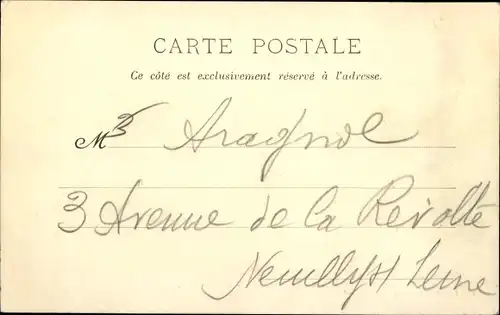 CARTE POSTALE
Ce côté est exclusivement réservé à l'adresse.
M Aragnol
3 Avenue de la Révolte
Neuilly s/ Seine